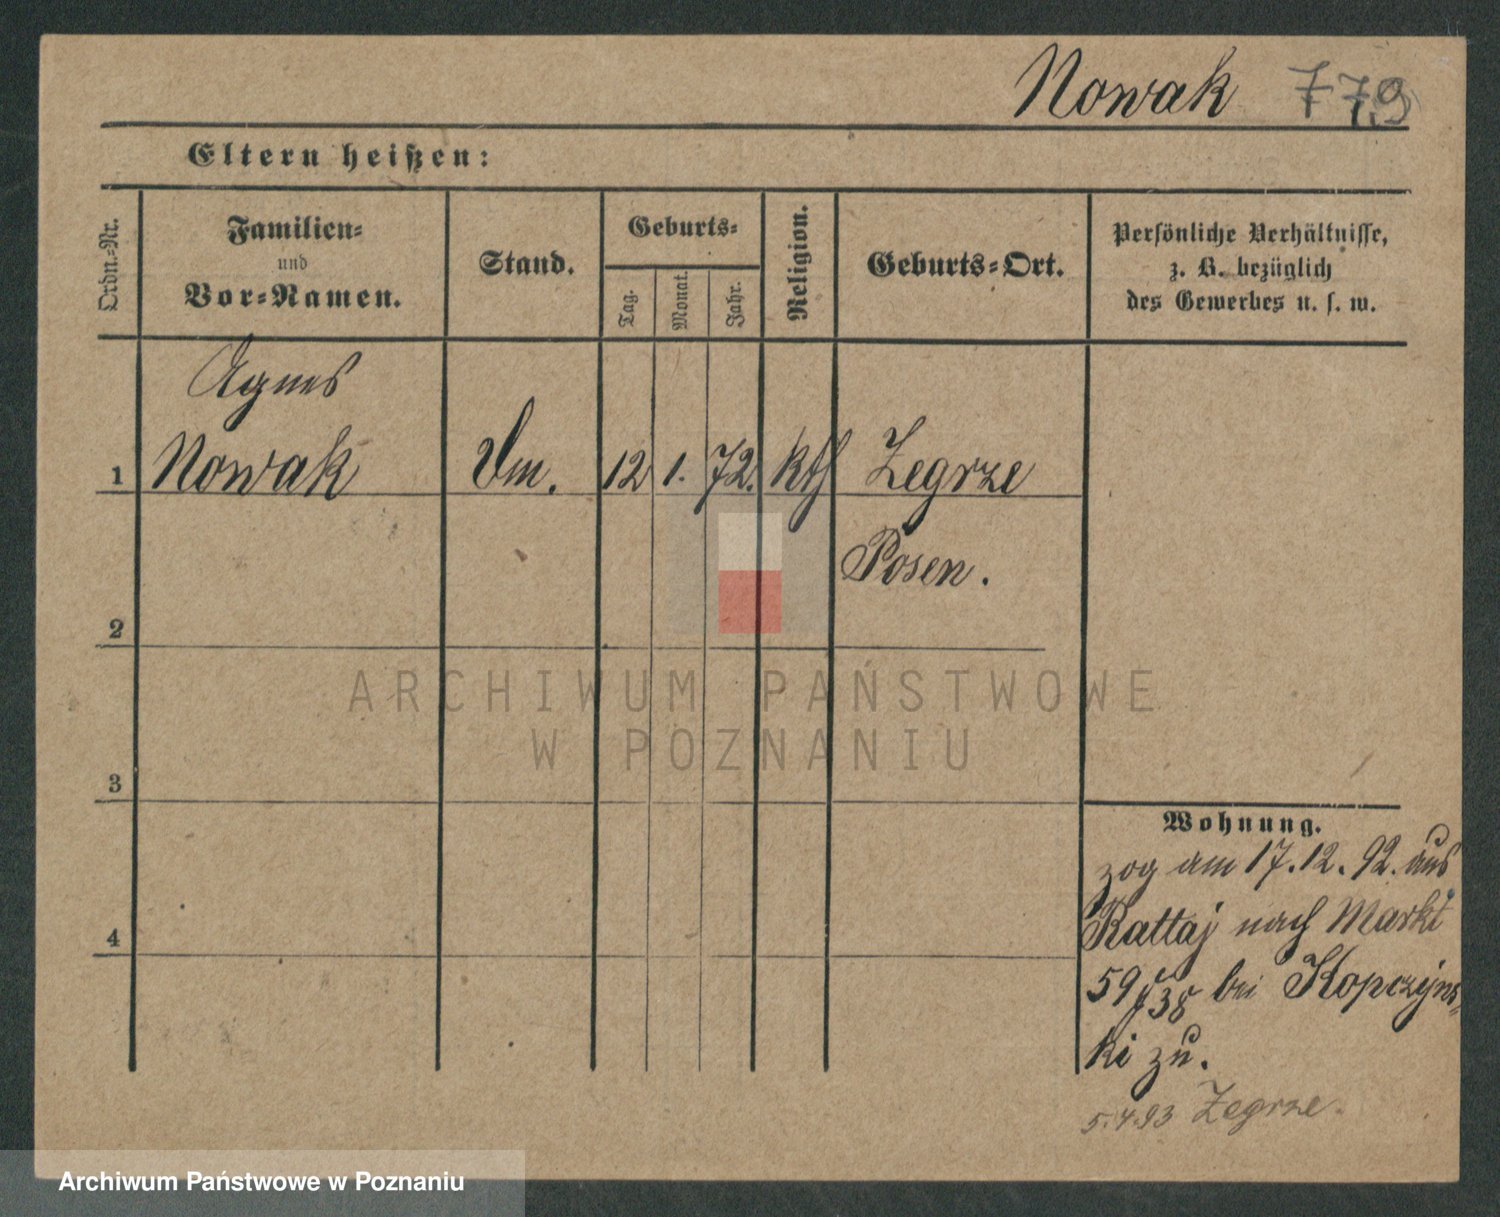 Nowak 779
Eltern heißen:
Ordn.-Nr.
Familien-
und
Vor-Namen.
Stand.
Geburts-
Tag.
Monat.
Jahr.
Religion.
Geburts-Ort.
Persönliche Verhältnisse,
z. B. bezüglich
des Gewerbes u. s. w.
Agnes
1 Nowak Dm. 12 1. 72. kth Zegrze
Posen.
2
3
4
Wohnung.
zog am 17.12.92. aus
Rattaj nach Markt
59 bei Kopczyns-
ki zu.
5.4.93 Zegrze.
ARCHIWUM PAŃSTWOWE
W POZNANIU
Archiwum Państwowe w Poznaniu